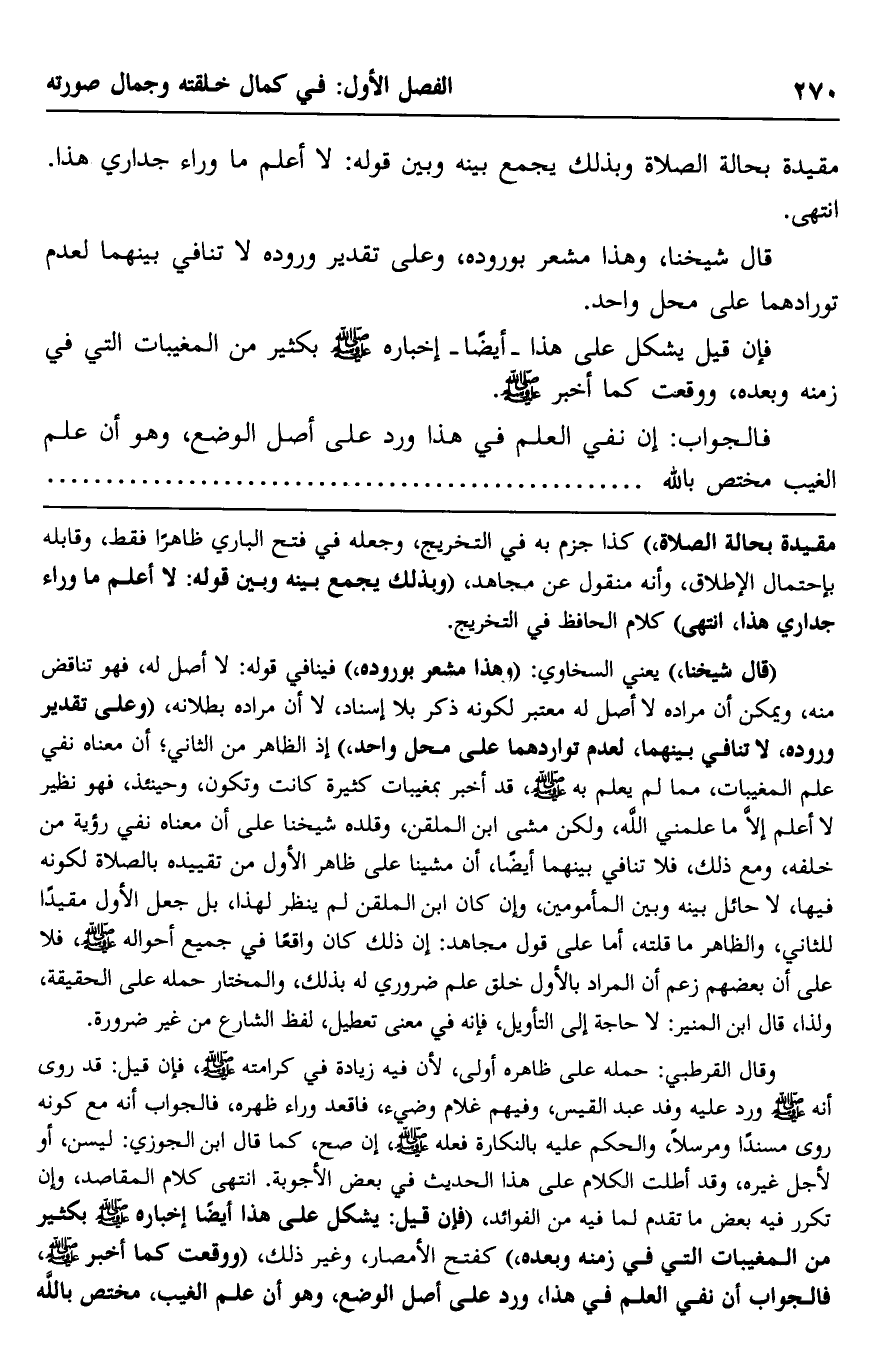 ٢٧٠ الفصل الأول: في كمال خلقته وجمال صورته
مقيدة بحالة الصلاة وبذلك يجمع بينه وبين قوله: لا أعلم ما وراء جداري هذا.
انتهى.
قال شيخنا، وهذا مشعر بوروده، وعلى تقدير وروده لا تنافي بينهما لعدم
تواردهما على محل واحد.
فإن قيل يشكل على هذا ـ أيضًا ـ إخباره ﷺ بكثير من المغيبات التي في
زمنه وبعده، ووقعت كما أخبر ﷺ.
فالجواب: إن نفي العلم في هذا ورد على أصل الوضع، وهو أن علم
الغيب مختص بالله ..................................................
مقيدة بحالة الصلاة،) كذا جزم به في التخريج، وجعله في فتح الباري ظاهرًا فقط، وقابله
بإحتمال الإطلاق، وأنه منقول عن مجاهد، (وبذلك يجمع بينه وبين قوله: لا أعلم ما وراء
جداري هذا، انتهى) كلام الحافظ في التخريج.
(قال شيخنا،) يعني السخاوي: (وهذا مشعر بوروده،) فينافي قوله: لا أصل له، فهو تناقض
منه، ويمكن أن مراده لا أصل له معتبر لكونه ذكر بلا إسناد، لا أن مراده بطلانه، (وعلى تقدير
وروده، لا تنافي بينهما، لعدم تواردهما على محل واحد،) إذ الظاهر من الثاني؛ أن معناه نفي
علم المغيبات، مما لم يعلم به ﷺ، قد أخبر بمغيبات كثيرة كانت وتكون، وحينئذ، فهو نظير
لا أعلم إلاَّ ما علمني اللَّه، ولكن مشى ابن الملقن، وقلده شيخنا على أن معناه نفي رؤية من
خلفه، ومع ذلك، فلا تنافي بينهما أيضًا، أن مشينا على ظاهر الأول من تقييده بالصلاة لكونه
فيها، لا حائل بينه وبين المأمومين، وإن كان ابن الملقن لم ينظر لهذا، بل جعل الأول مقيدًا
للثاني، والظاهر ما قلته، أما على قول مجاهد: إن ذلك كان واقعًا في جميع أحواله ﷺ، فلا
على أن بعضهم زعم أن المراد بالأول خلق علم ضروري له بذلك، والمختار حمله على الحقيقة،
ولذا، قال ابن المنير: لا حاجة إلى التأويل، فإنه في معنى تعطيل، لفظ الشارع من غير ضرورة.
وقال القرطبي: حمله على ظاهره أولى، لأن فيه زيادة في كرامته ﷺ، فإن قيل: قد روى
أنه ﷺ ورد عليه وفد عبد القيس، وفيهم غلام وضيء، فاقعد وراء ظهره، فالجواب أنه مع كونه
روى مسندًا ومرسلاً، والحكم عليه بالنكارة فعله ﷺ، إن صح، كما قال ابن الجوزي: ليسن، أو
لأجل غيره، وقد أطلت الكلام على هذا الحديث في بعض الأجوبة. انتهى كلام المقاصد، وإن
تكرر فيه بعض ما تقدم لما فيه من الفوائد، (فإن قيل: يشكل على هذا أيضًا إخباره ﷺ بكثير
من المغيبات التي في زمنه وبعده،) كفتح الأمصار، وغير ذلك، (ووقعت كما أخبر ﷺ،
فالجواب أن نفي العلم في هذا، ورد على أصل الوضع، وهو أن علم الغيب، مختص باللَّه